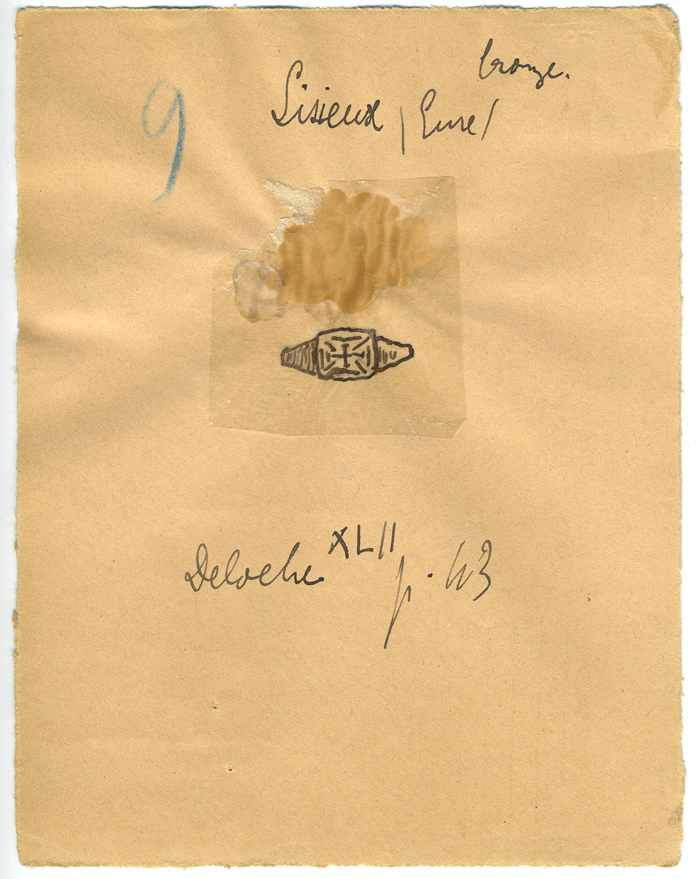 bronze.
9 Lisieux (Eure)
Deloche XLII p. 43